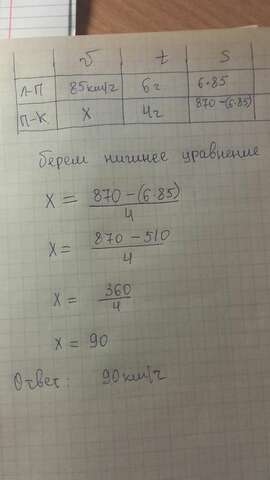 v t s
Л-П 85км/г 6г 6·85
П-К X 4г 870-(6·85)
берем нижнее уравнение
X = 870-(6·85)/4
X = 870-510/4
X = 360/4
X = 90
Ответ: 90км/г